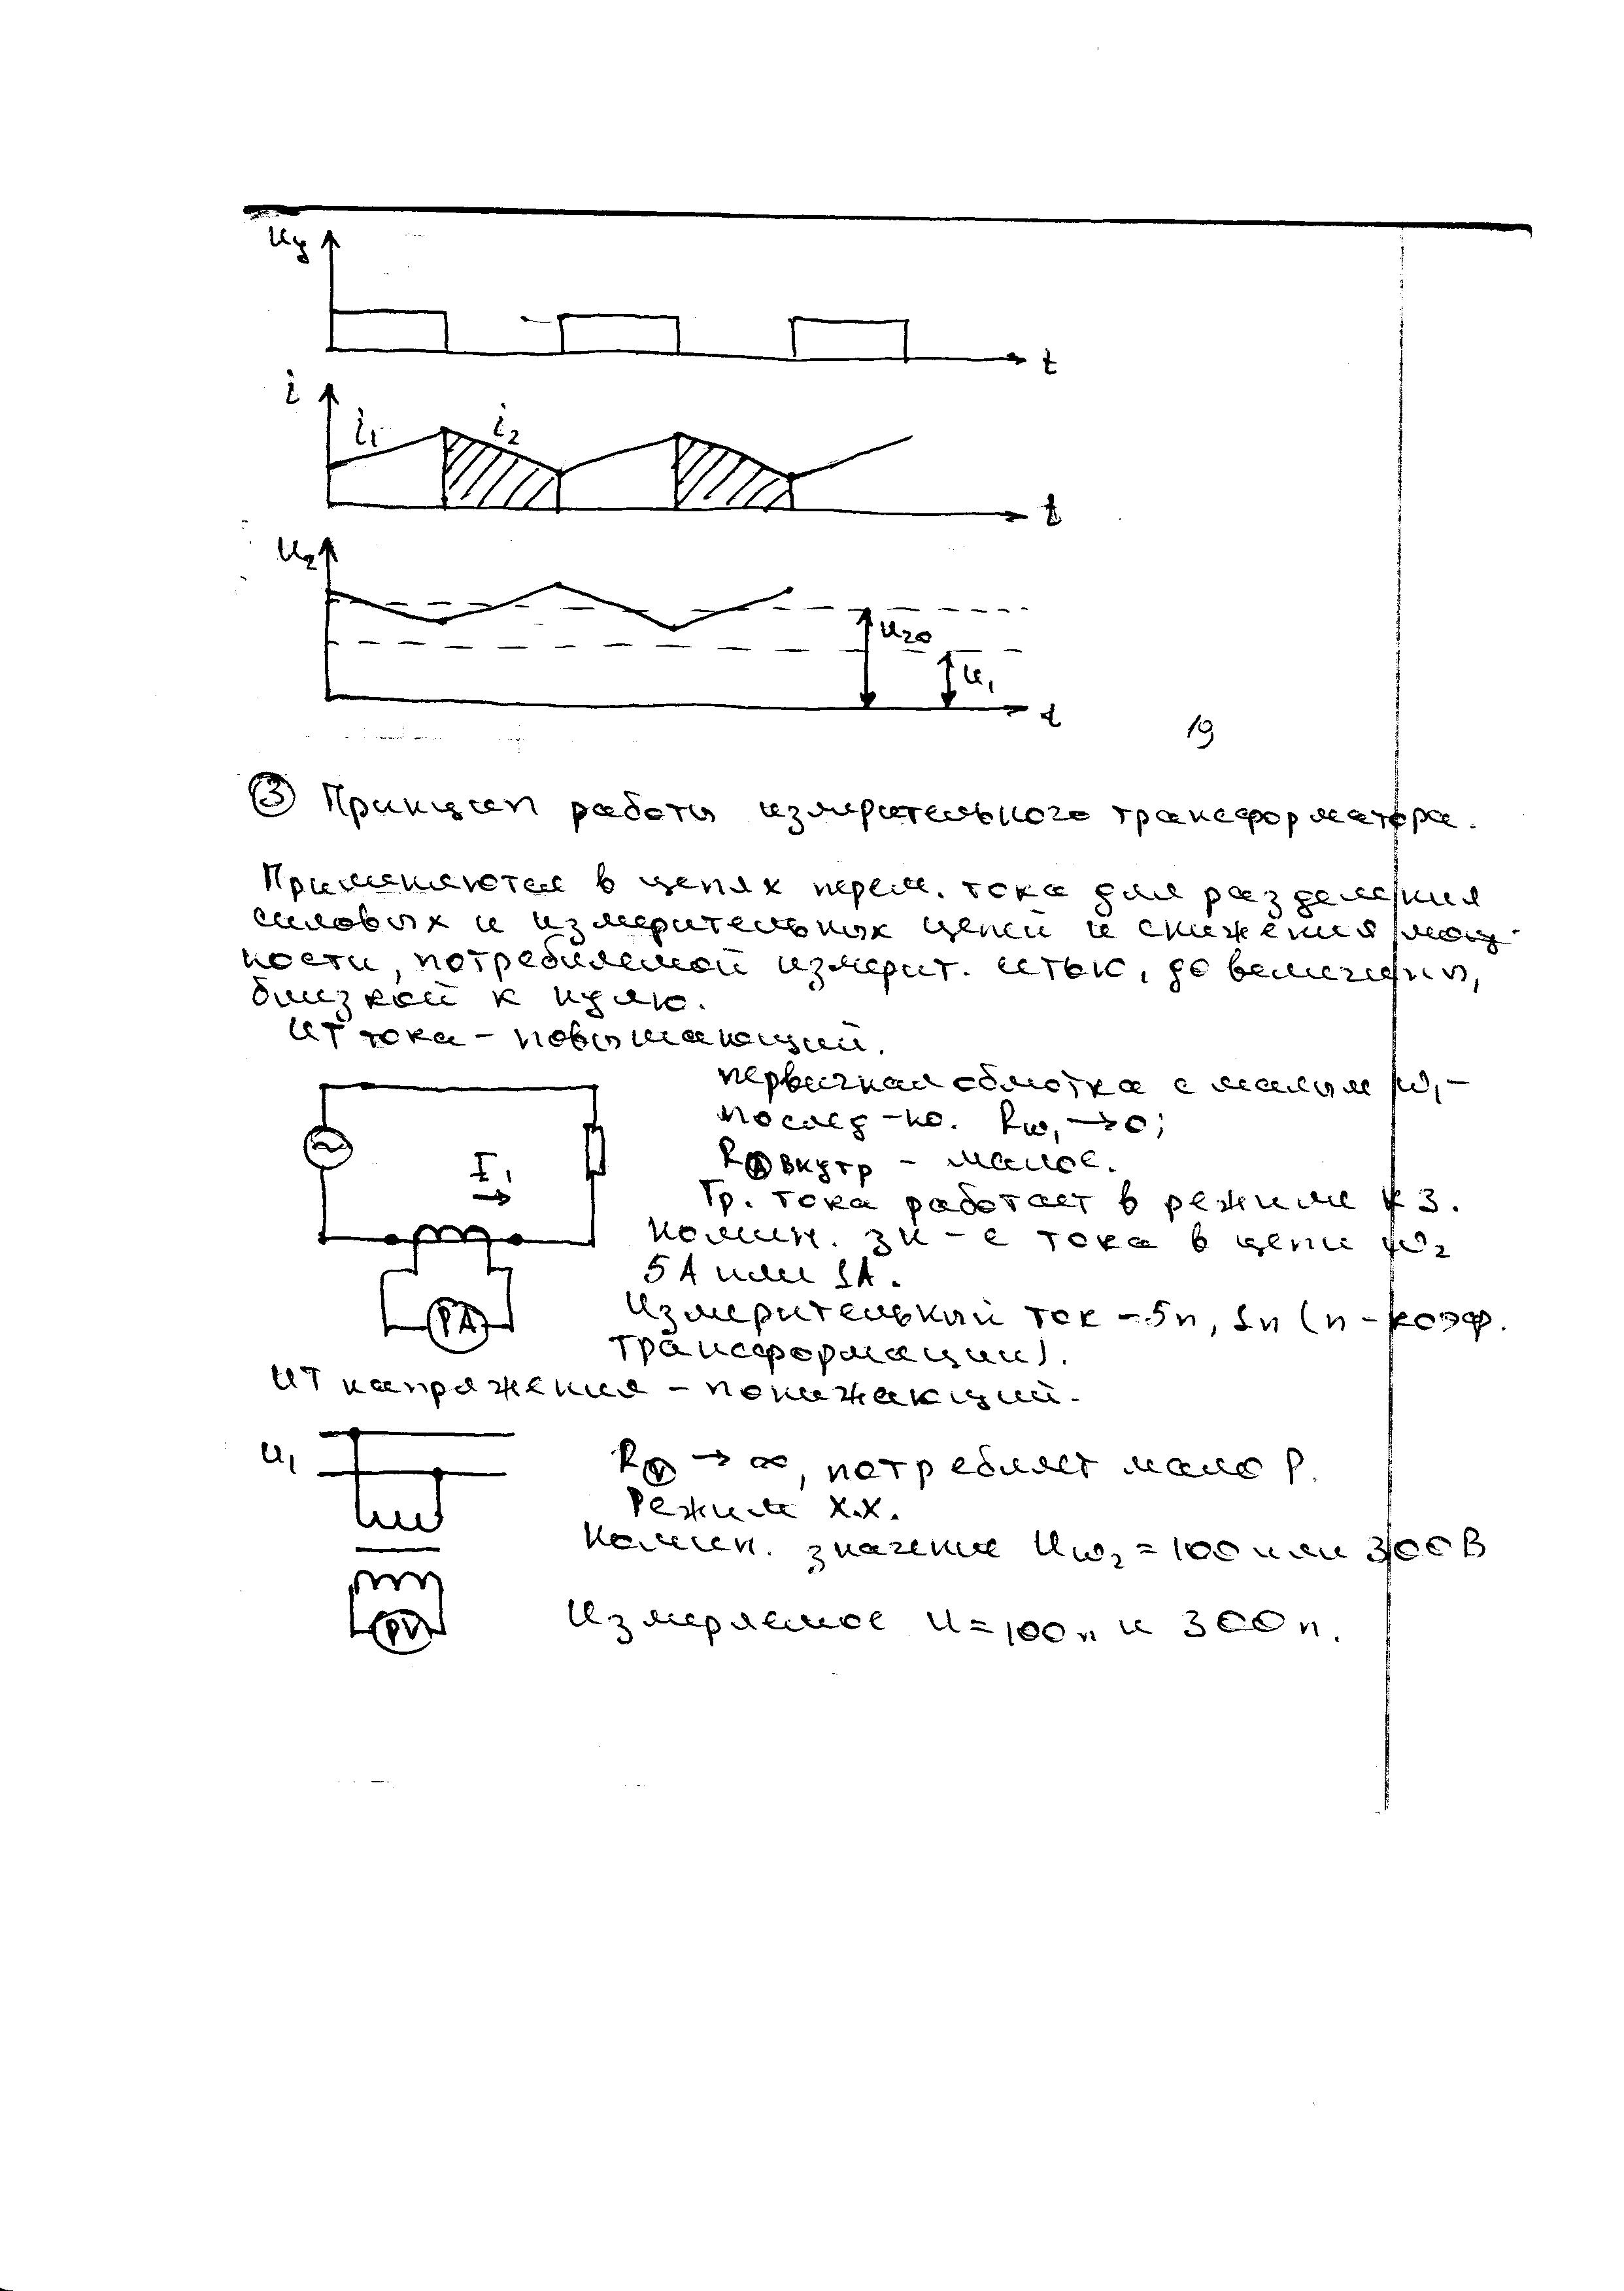 uу
t
i
i₁
i₂
t
u₂
u₂₀
u₁
t
19
③ Принцип работы измерительного трансформатора.
Применяются в цепях перем. тока для разделения
силовых и измерительных цепей и снижения мощ-
ности, потребляемой измерит. сетью, до величины,
близкой к нулю.
ИТ тока – повышающий.
первичная обмотка с малым w₁ –
послед-но. Rw₁ → 0;
RⒶ внутр – малое.
Тр. тока работает в режиме КЗ.
I₁
номин. зн-е тока в цепи w₂
5А или 1А.
Измерительный ток – 5n, 1n (n – коэф.
PA
трансформации).
ИТ напряжения – понижающий.
u₁
RⓋ → ∞, потребляет мало P.
Режим х.х.
Номин. значение Uw₂ = 100 или 300В
Измеряемое U = 100n и 300n.
PV